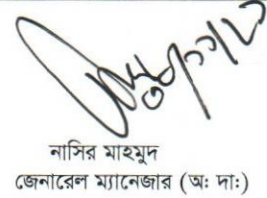 নাসির মাহমুদ
জেনারেল ম্যানেজার (অ: দা:)